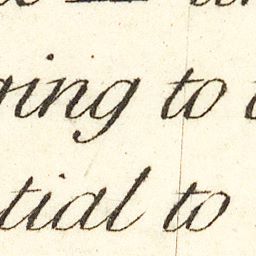 ring to t
tial to